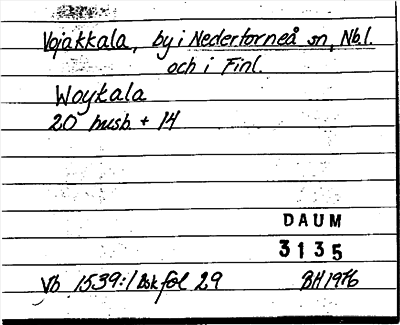 Vojakkala, by i Nedertorneå sn, Nb.l.
och i Finl.
Woykala
20 hush. + 14
DAUM
3135
Vb 1539:1 Bsk fol 29 BH 1976